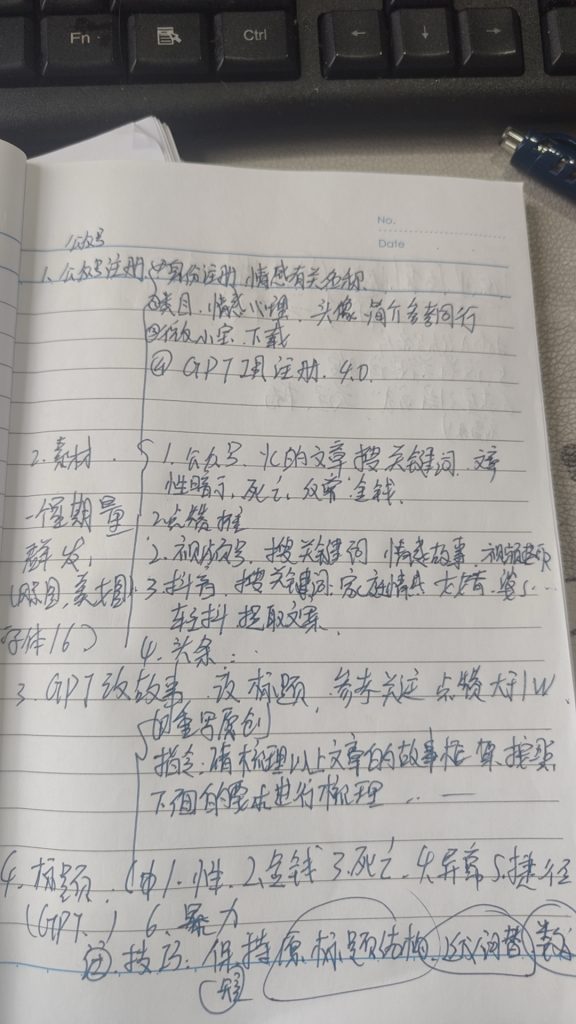 Fn
Ctrl
←
↓
→
No.
Date
公众号
1. 公众号注册 ①身份注册 情感有关名称
②类目、情感心理、头像 简介多参同行
③ 小宝 下载
④ GPT 注册. 4.0.
2. 素材 1. 公众号. 火的文章 搜关键词
性暗示, 死亡, 金钱.
一个星期量 2 点赞 推
群发, 2. 视频号. 搜关键词 情感故事. 视频
(原图, 美女图) 3. 抖音. 搜关键词. 家庭情感
字体16) 轻抖 提取文案.
4. 头条...
3. GPT改故事 改标题, 参考关注 点赞大于1W
的重写原创
指令: 请梳理以上文章的故事框架 按照
下面的要求进行梳理 ...—
4. 标题. 1. 性. 2. 金钱 3. 死亡. 4. 异常 5. 捷径
(GPT.) 6. 暴力
技巧: 保持原标题结构, 近义词替